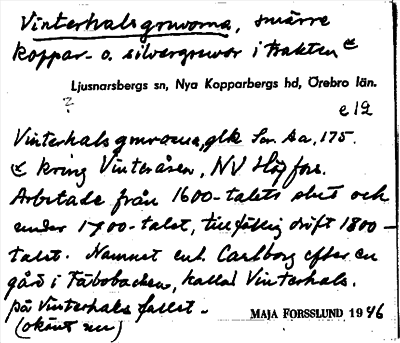 Vinterhalsgruvorna, smärre
koppar- o. silvergruvor i trakten
Ljusnarsbergs sn, Nya Kopparbergs hd, Örebro län.
?
e 19
Vinterhalsgruvorna, glk Ser. Aa, 175.
kring Vinteråsen, NV Högfors.
Arbetade från 1600-talets slut och
under 1700-talet, tillfällig drift 1800-
talet. Namnet enl. Carlborg efter en
gård i Fäbobacken, kallad Vinterhals.
på Vinterhals fallet.
(okänt nu)
MAJA FORSSLUND 1946